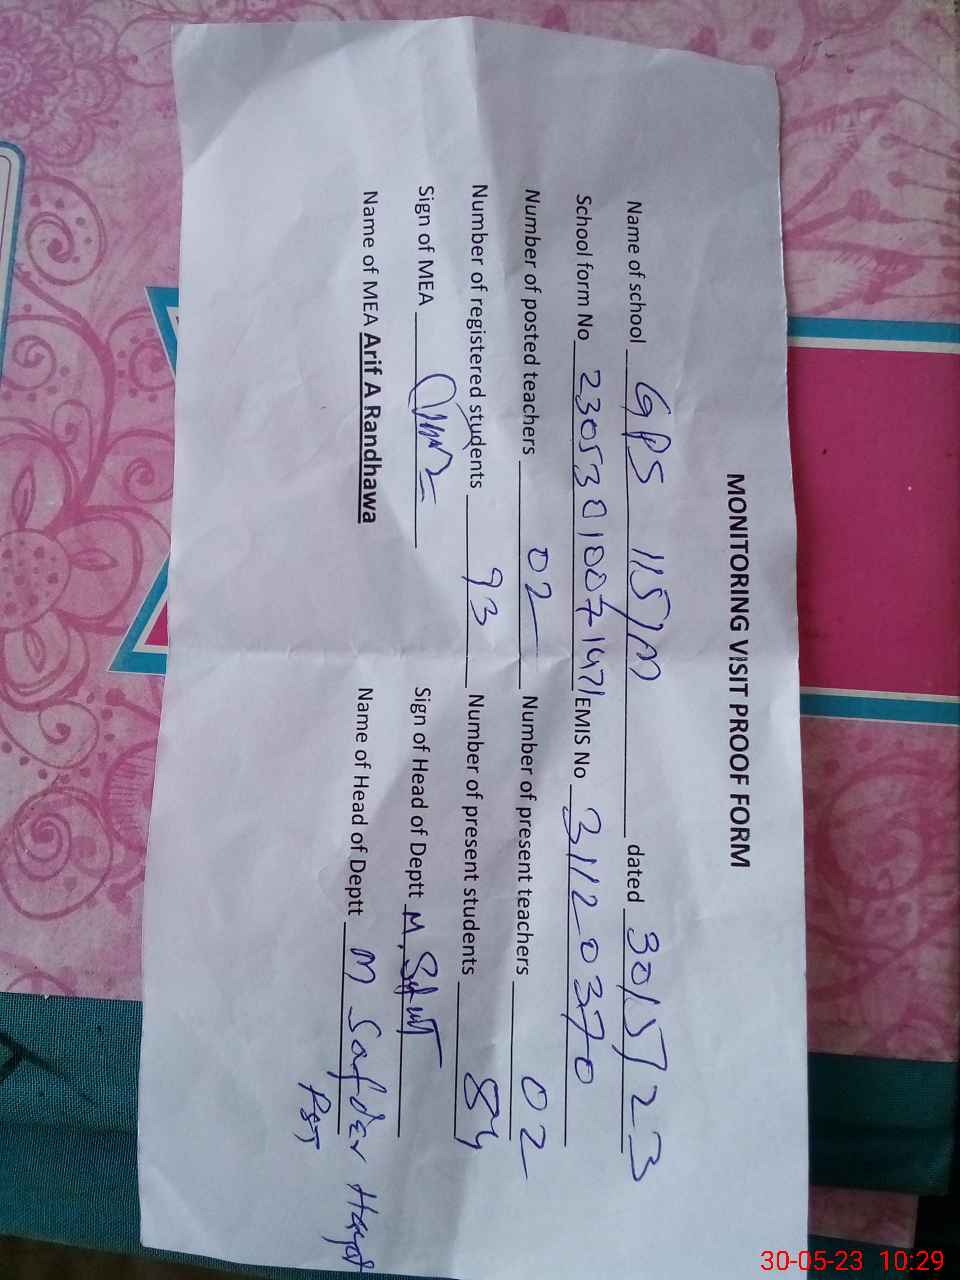 MONITORING VISIT PROOF FORM
Name of school GPS 115/M dated 30/5/23
School form No 23053010071471 EMIS No 31120370
Number of posted teachers 02 Number of present teachers 02
Number of registered students 93 Number of present students 84
Sign of MEA Sign of Head of Deptt M.
Name of MEA Arif A Randhawa Name of Head of Deptt M Safder Hayat
PST
30-05-23 10:29